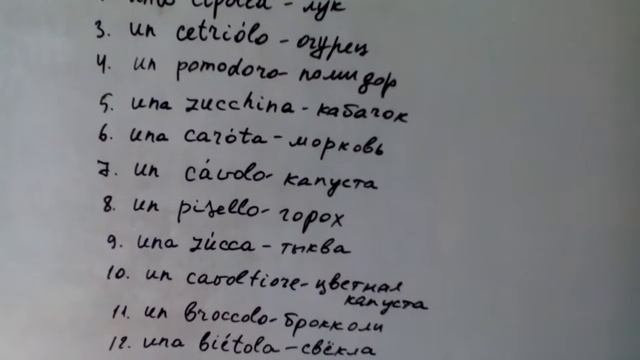 - лук
3. un cetriólo - огурец
4. un pomodoro - помидор
5. una zucchina - кабачок
6. una caróta - морковь
7. un cávolo - капуста
8. un pisello - горох
9. una zúcca - тыква
10. un cavolfiore - цветная
капуста
11. un broccolo - брокколи
12. una biétola - свёкла